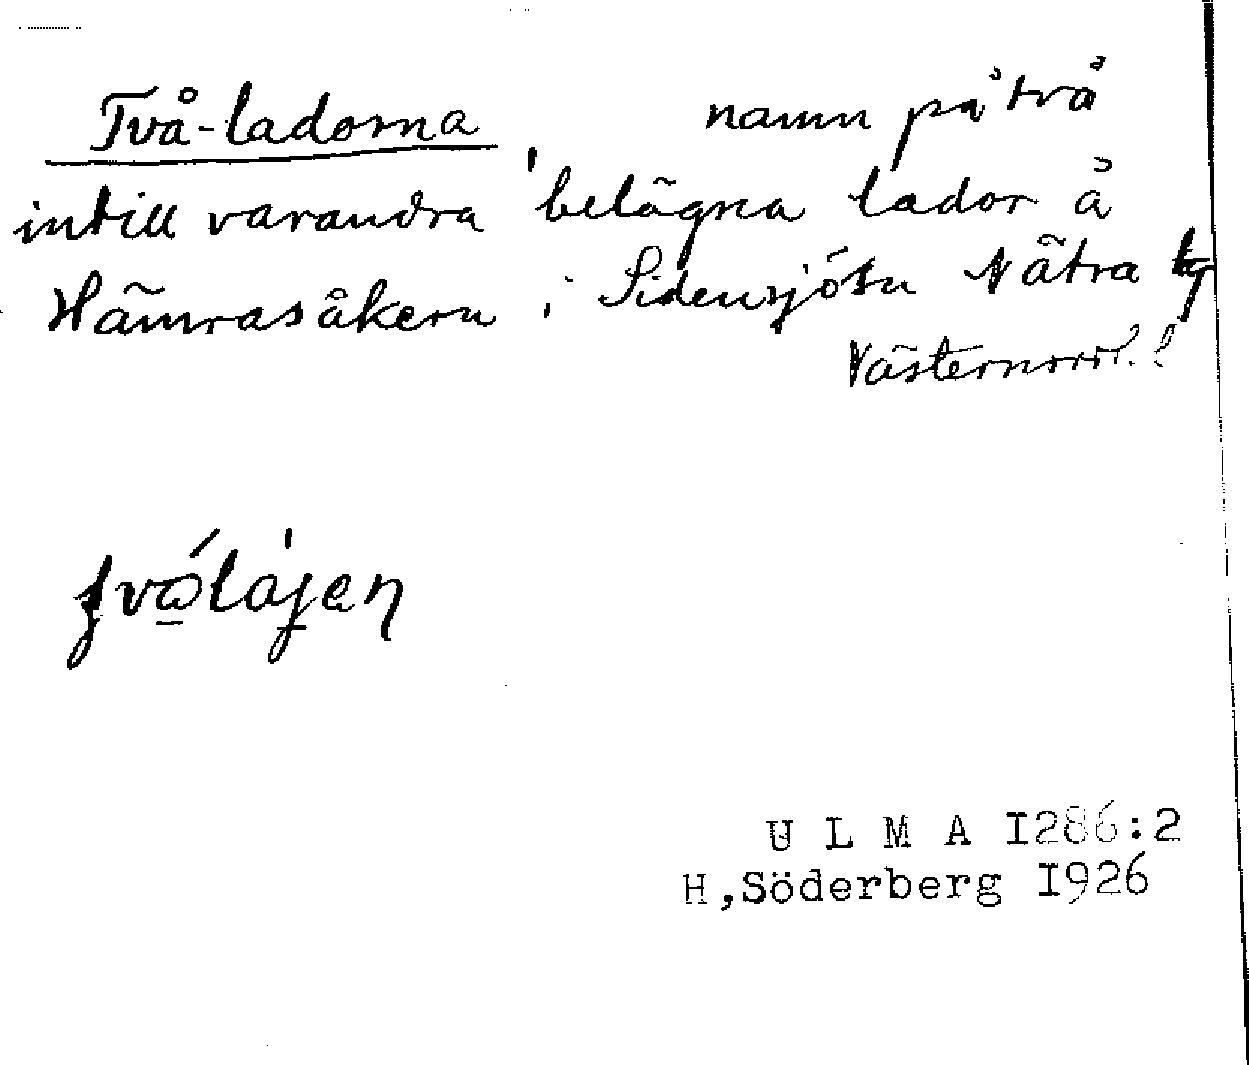 Två-ladorna namn på två
intill varandra belägna lador å
Hämrasåkern i Sidensjö sn Nätra tg
Västernorrl. l
U L M A I286:2
H,Söderberg I926